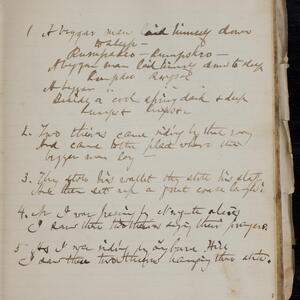 1 A beggar man laid himself down
to sleep —
Rumpadeo — Rumpadeo —
A beggar man laid himself down to sleep
Rumpadeo
A beggar "
Beside a cool spring dark & deep
2. Two thieves came riding by that way
And came to the place where the
beggar man lay —
3. They stole his wallet they stole his staff
And then set up a great coarse laugh.
4. As I was passing by Newgate
I saw these two thieves saying their prayers.
5. As I was riding by Tyburn Hill
I saw these two thieves hanging there